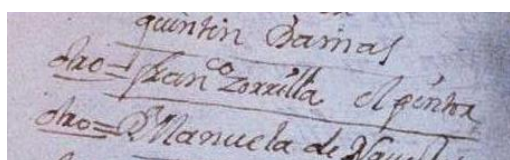 quintin Damas
otro= fran.co zorrilla el pintor
otro= D.ª Manuela de